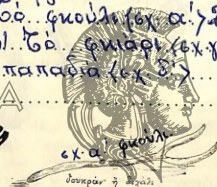 φκούλι (σχ. α΄)
Τὸ φκιάρι (σχ. γ
παπαδιά (σχ. δ΄)
Α
σχ. α΄ φκούλι.
δουκράν' ἢ